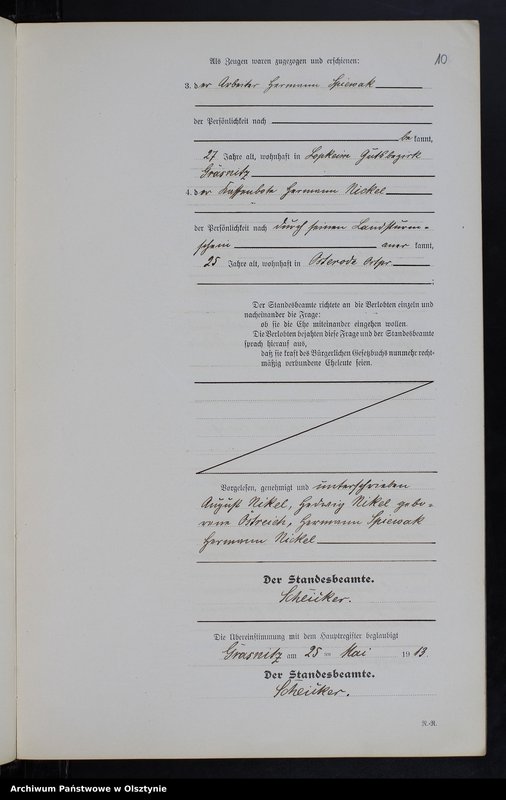 10
Als Zeugen waren zugezogen und erschienen:
3. der Arbeiter Hermann Spiewak
der Persönlichkeit nach
be kannt,
27 Jahre alt, wohnhaft in Lopkeim Gutsbezirk
Grasnitz
4. der Kassenbote Hermann Nickel
der Persönlichkeit nach durch seinen Landsturm-
schein aner kannt,
25 Jahre alt, wohnhaft in Osterode Ostpr.
;
Der Standesbeamte richtete an die Verlobten einzeln und
nacheinander die Frage:
ob sie die Ehe miteinander eingehen wollen.
Die Verlobten bejahten diese Frage und der Standesbeamte
sprach hierauf aus,
daß sie kraft des Bürgerlichen Gesetzbuchs nunmehr recht-
mäßig verbundene Eheleute seien.
Vorgelesen, genehmigt und unterschrieben
August Nikel, Hedwig Nikel gebo-
rene Östreich, Hermann Spiewak
Hermann Nickel
Der Standesbeamte.
Scheuker.
Die Übereinstimmung mit dem Hauptregister beglaubigt
Grasnitz am 25 ten Mai 19 13.
Der Standesbeamte.
Scheuker.
N.-R.
Archiwum Państwowe w Olsztynie